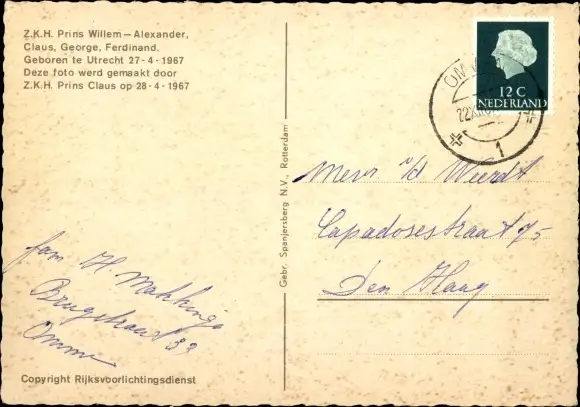 Z.K.H. Prins Willem – Alexander,
Claus, George, Ferdinand.
Geboren te Utrecht 27 - 4 - 1967
Deze foto werd gemaakt door
Z.K.H. Prins Claus op 28 - 4 - 1967
12 C
NEDERLAND
1
Gebr. Spanjersberg N.V., Rotterdam
Mevr. v/d Weerdt
Capadosestraat 75
Den Haag
fam H Makkinga
Brugstraat 33
Ommen
Copyright Rijksvoorlichtingsdienst